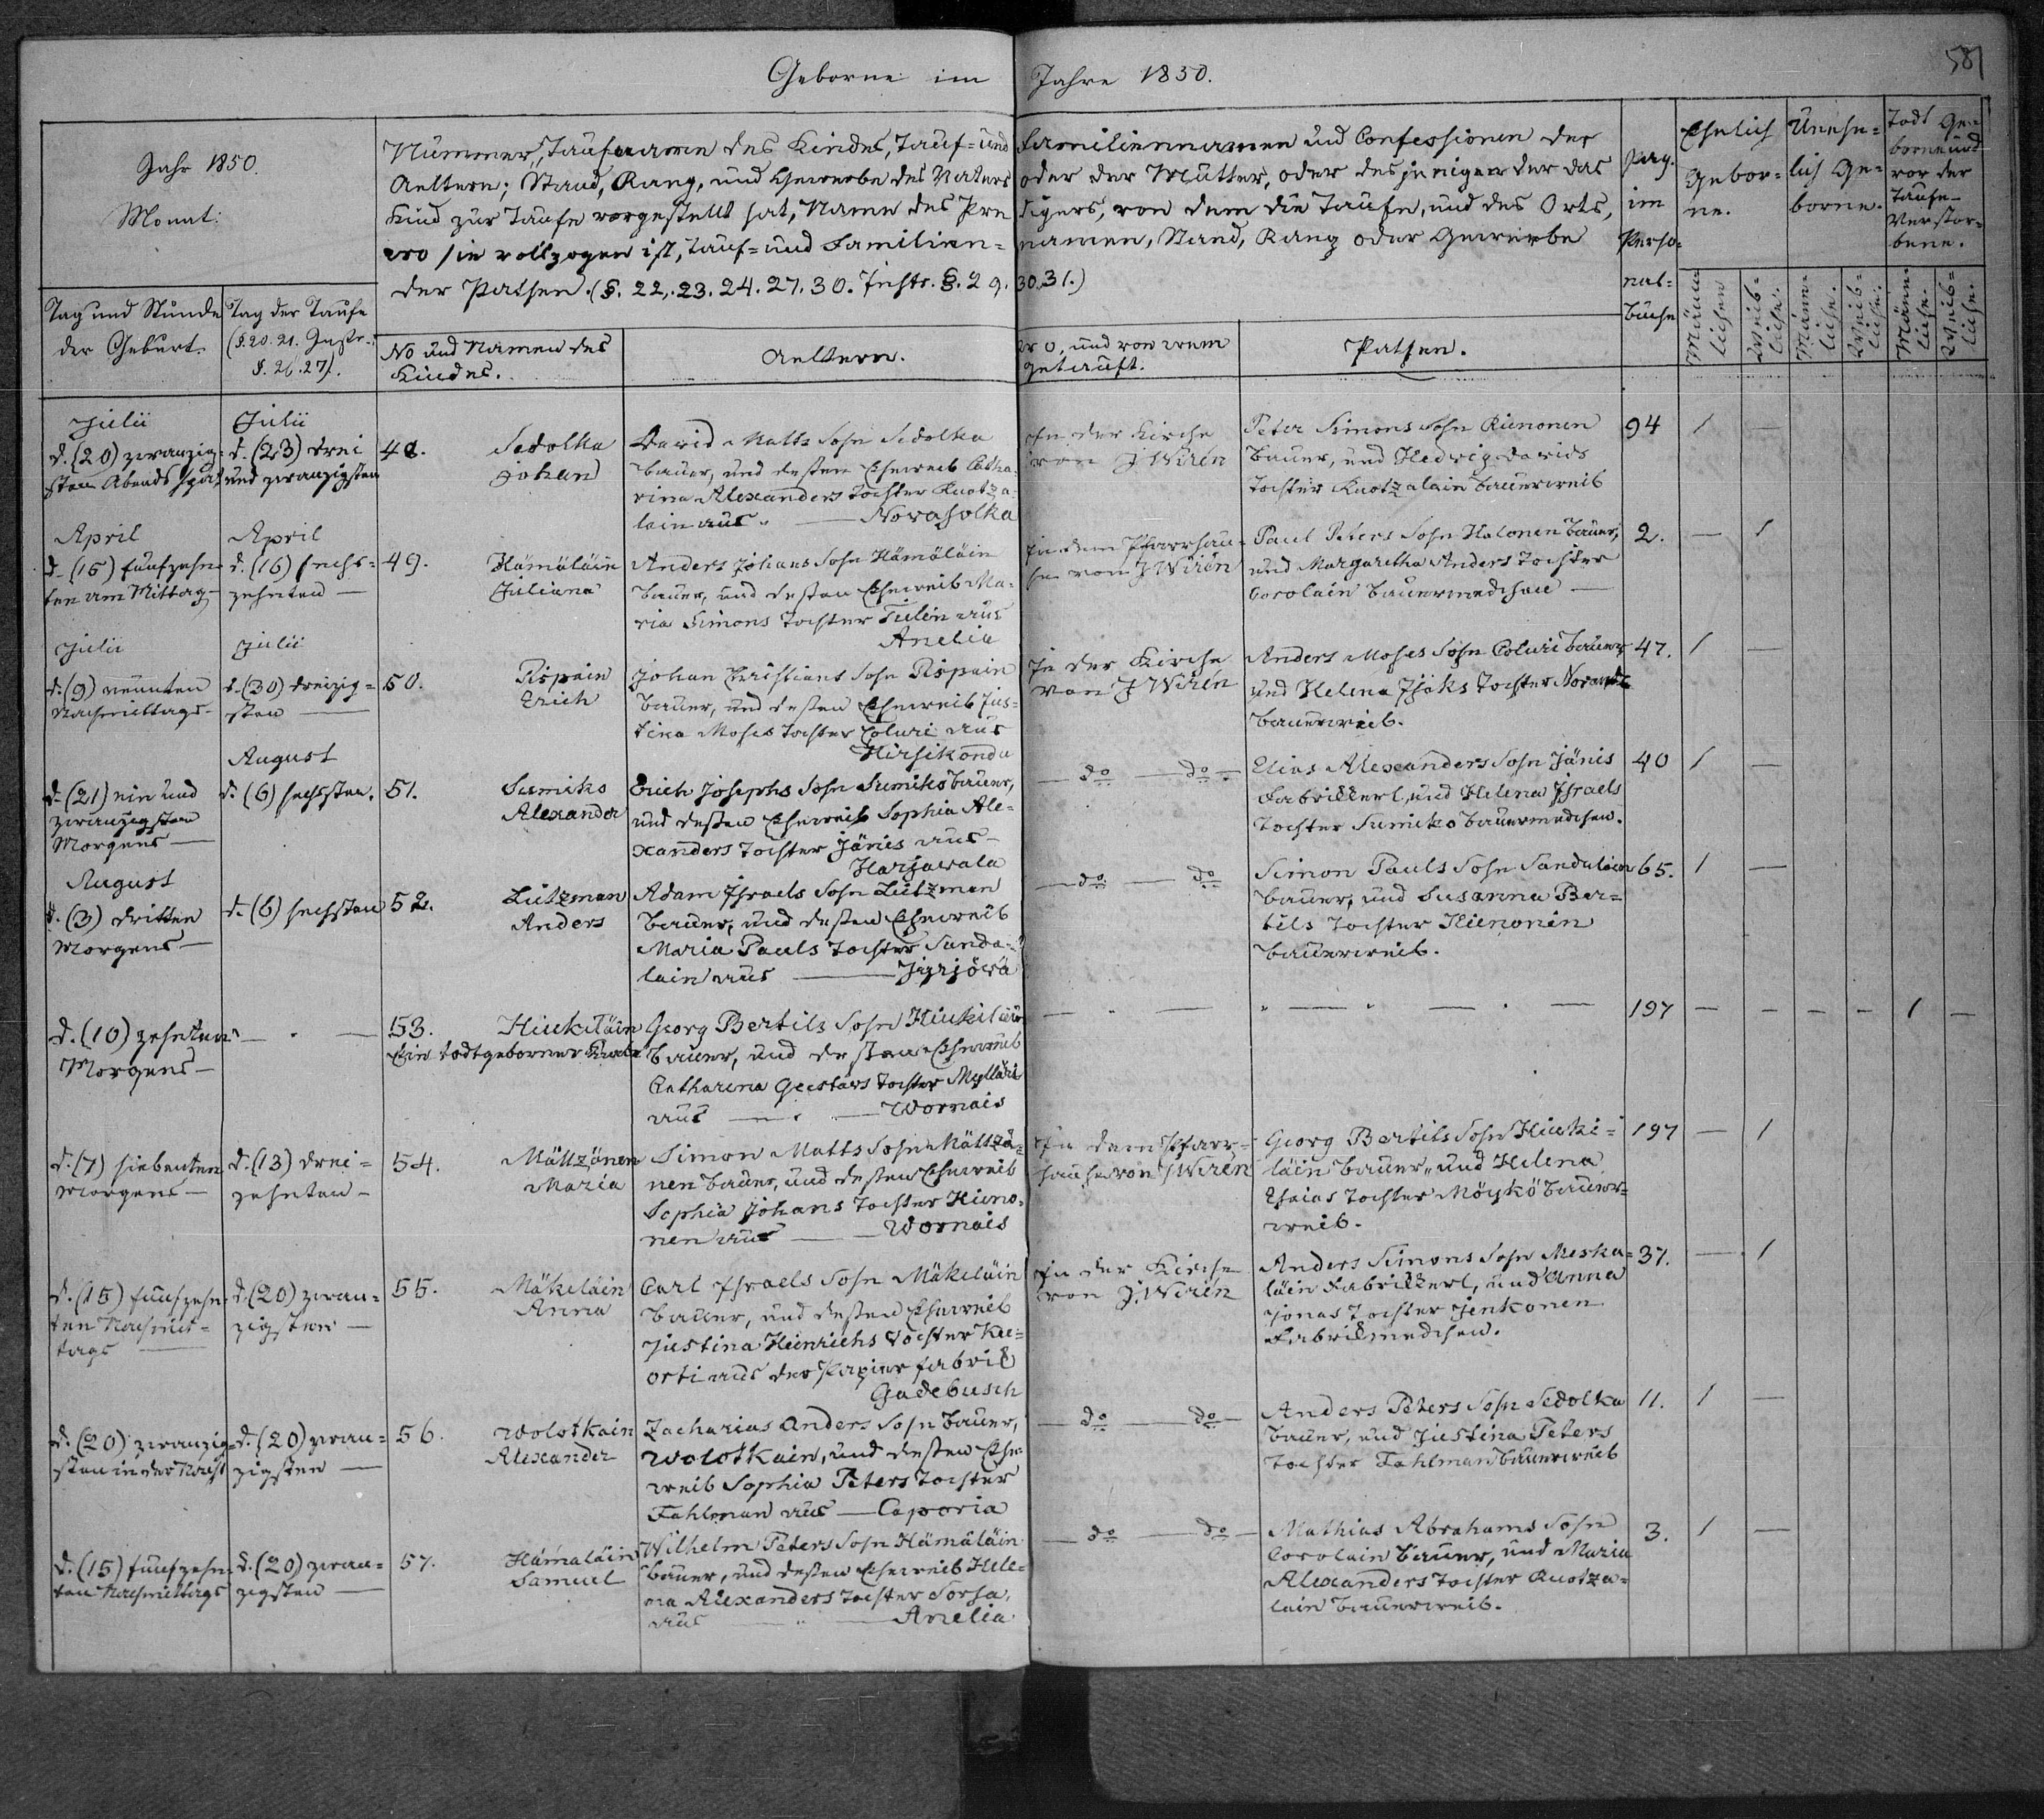 581
Geborne im Jahre 1850.
Jahr 1850.
Monat:
Nummer, Taufname des Kindes, Tauf- und Familiennamen und Confessionen der
Aeltern; Stand, Rang, und Gewerbe des Vaters oder der Mutter, oder desjenigen der das
Kind zur Taufe vorgestellt hat, Name des Predigers, von dem die Taufe, und des Orts,
wo sie vollzogen ist, Tauf- und Familien-namen, Stand, Rang oder Gewerbe
der Pathen. (§. 22. 23. 24. 27. 30. Instr. §. 29. 30. 31.)
Pag.
im
Perso-
nal-
buche
Ehelich
Gebor-
ne.
Unehe-
lich Ge-
borne.
Todt Ge-
borne und
vor der
Taufe
Verstor-
bene.
Tag und Stunde
der Geburt.
Tag der Taufe
(§. 20. 21. Instr.
§. 26. 27).
No und Namen des
Kindes.
Aeltern.
Wo, und von wem
getauft.
Pathen.
Männ-
lichen
Weib-
liche.
Männ-
liche.
Weib-
liche.
Männ-
liche.
Weib-
liche.
Julii
d. (20) zwanzig-
sten Abends spät
Julii
d. (23) drei
und zwanzigsten
48.
Sedolka
Johan
David Matts Sohn Sedolka
Bauer, und dessen Eheweib Catha-
rina Alexanders Tochter Kuotza-
lain aus. — Novasolka
In der Kirche
von J Wirén
Peter Simons Sohn Kienonen
Bauer, und Hedvig Davids
Tochter Kuotzalain Bauerweib
94 1 —
April
d. (15) fünfzehn-
ten am Mittag —
April
d. (16) sechs-
zehnten —
49.
Hämäläin
Juliana
Anders Johans Sohn Hämäläin
Bauer, und dessen Eheweib Ma-
ria Simons Tochter Tulin aus
Anelia
In dem Pfarrhau-
se von J Wirén
Paul Peters Sohn Halonen Bauer,
und Margaretha Anders Tochter
Corolain Bauermedchen —
2. — 1
Julii
d. (9) neunten
Nachmittags —
Julii
d. (30) dreizig-
sten —
50.
Rispain
Erich
Johan Christians Sohn Rispain
Bauer, und dessen Eheweib Jus-
tina Moses Tochter Coluri aus
Hirsikondu
In der Kirche
von J Wirén
Anders Moses Sohn Coluri Bauer
und Helena Isaks Tochter
Bauerweib.
47. 1 —
d. (21) ein und
zwanzigsten
Morgens —
August
d. (6) sechsten.
51.
Sumiks
Alexander
Erich Josephs Sohn Sumiks Bauer,
und dessen Eheweib Sophia Ale-
xanders Tochter Jänis aus —
Harjawala
— do — do —
Elias Alexanders Sohn Jänis
Fabrikkerl, und Helena Israels
Tochter Sumiks Bauermedchen.
40 1 —
August
d. (3) dritten
Morgens —
d. (6) sechsten
52.
Lützman
Anders
Adam Israels Sohn Lützman
Bauer, und dessen Eheweib
Maria Pauls Tochter Sanda-
lain aus — Jigrjöwä
— do — do
Simon Pauls Sohn Sandalain
Bauer, und Susanna Ber-
tils Tochter Kienonen
Bauerweib.
65. 1 —
d. (10) zehnten
Morgens —
53. Hiukiläin
Ein todtgeborner Knabe
Georg Bertils Sohn Hiukiläin
Bauer, und dessen Eheweib
Catharina Gustavs Tochter Mylläri
aus — Wornais
197 — — — — 1 —
d. (7) siebenten
Morgens —
d. (13) drei-
zehnten —
54.
Mältzönen
Maria
Simon Matts Sohn Mältzö-
nen Bauer, und dessen Eheweib
Sophia Johans Tochter Kieno-
nen aus — Wornais
In dem Pfarr-
hause von J Wirén
Georg Bertils Sohn Hiuki-
läin Bauer, und Helena
Esaias Tochter Möykö Bauer-
weib.
197 — 1
d. (15) fünfzehn
ten Nachmit-
tags —
d. (20) zwan-
zigsten —
55.
Mäkeläin
Anna
Carl Israels Sohn Mäkeläin
Bauer, und dessen Eheweib
Justina Heinrichs Tochter Ku-
orti aus der Papier fabrik
Gadebusch
In der Kirche
von J. Wirén
Anders Simons Sohn Meska-
läin Fabrikkerl, und Anna
Jonas Tochter Jenkonen
Fabrikmedchen.
37. — 1
d. (20) zwanzig-
sten in der Nacht
d. (20) zwan-
zigsten —
56.
Wolotkain
Alexander
Zacharias Anders Sohn Bauer,
Wolotkain, und dessen Ehe-
weib Sophia Peters Tochter
Fahlman aus — Caporia
— do — do —
Anders Peters Sohn Sedolka
Bauer, und Justina Peters
Tochter Fahlman Bauerweib
11. 1 —
d. (15) fünfzehn-
ten Nachmittags
d. (20) zwan-
zigsten —
57.
Hämäläin
Samuel
Wilhelm Peters Sohn Hämäläin
Bauer, und dessen Eheweib Hele-
na Alexanders Tochter Sorsa,
aus — Anelia
— do — do —
Mathias Abrahams Sohn
Corolain Bauer, und Maria
Alexanders Tochter Kuotza-
lain Bauerweib.
3. 1 —